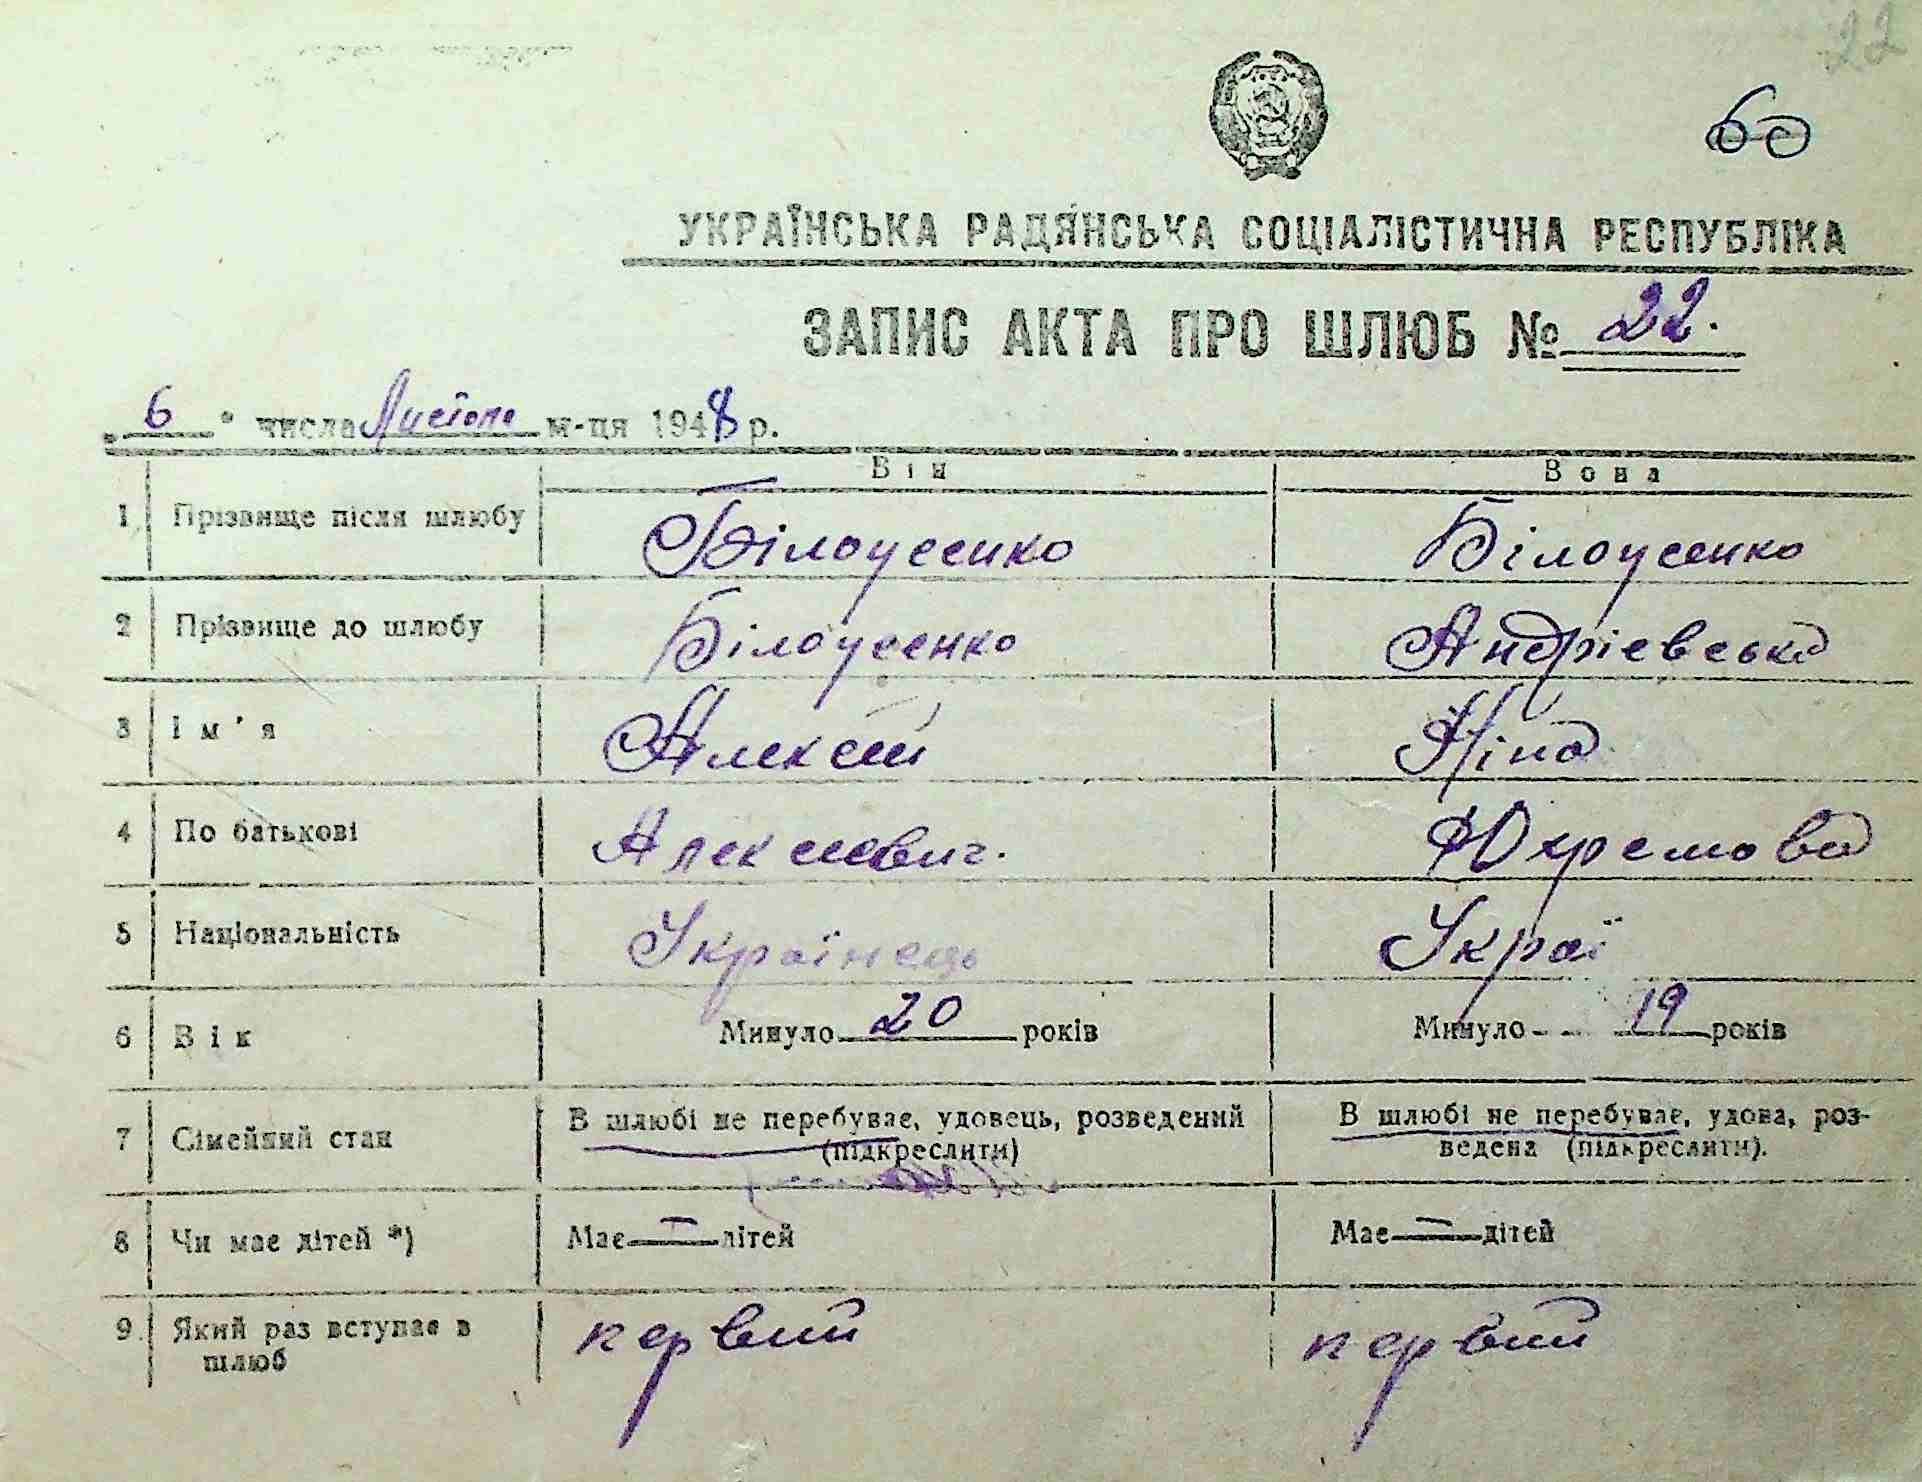 22
60
УКРАЇНСЬКА РАДЯНСЬКА СОЦІАЛІСТИЧНА РЕСПУБЛІКА
ЗАПИС АКТА ПРО ШЛЮБ № 22.
„ 6 " числа Листопа м-ця 1948 р.
Він Вона
1. Прізвище після шлюбу Білоусенко Білоусенко
2 Прізвище до шлюбу Білоусенко Андрієвська
3 Ім'я Алексей Ніна
4 По батькові Алексеевич. Юхремова
5 Національність Українець Украї
6 Вік Минуло 20 років Минуло 19 років
7 Сімейний стан В шлюбі не перебуває, удовець, розведений (підкреслити) В шлюбі не перебуває, удова, роз-
ведена (підкреслити).
8 Чи має дітей *) Має — дітей Має — дітей
9. Який раз вступає в шлюб первий первий